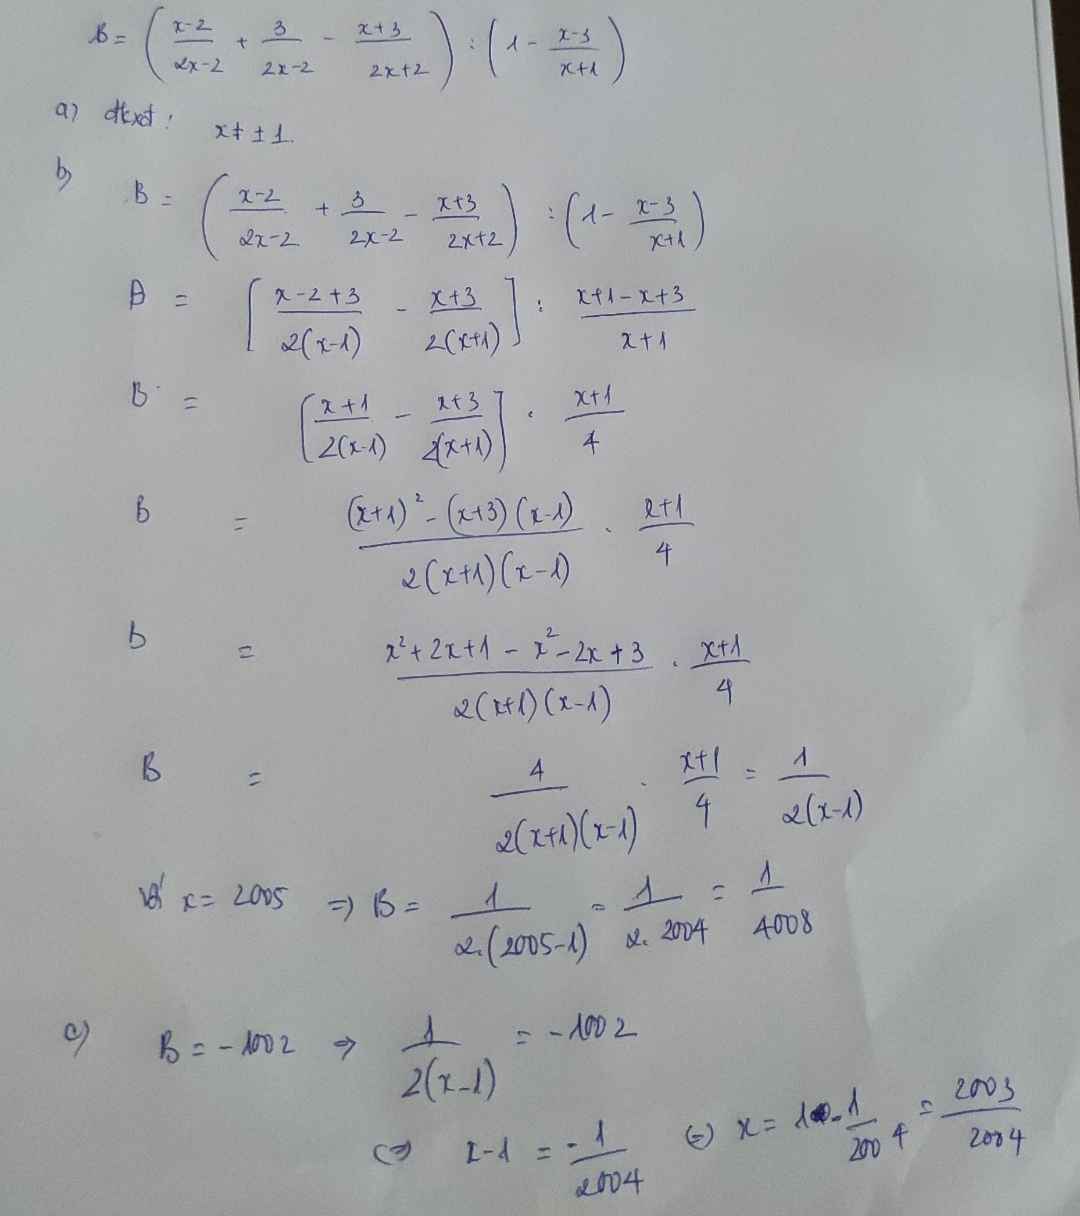 B = ( (x-2)/(2x-2) + 3/(2x-2) - (x+3)/(2x+2) ) : ( 1 - (x-3)/(x+1) )
a) đkxđ: x ≠ ±1.
b) B = ( (x-2)/(2x-2) + 3/(2x-2) - (x+3)/(2x+2) ) : ( 1 - (x-3)/(x+1) )
B = [ (x-2+3)/(2(x-1)) - (x+3)/(2(x+1)) ] : (x+1-x+3)/(x+1)
B = [ (x+1)/(2(x-1)) - (x+3)/(2(x+1)) ] . (x+1)/4
B = ((x+1)² - (x+3)(x-1))/(2(x+1)(x-1)) . (x+1)/4
B = (x²+2x+1 - x²-2x+3)/(2(x+1)(x-1)) . (x+1)/4
B = 4/(2(x+1)(x-1)) . (x+1)/4 = 1/(2(x-1))
với x = 2005 => B = 1/(2.(2005-1)) = 1/(2.2004) = 1/4008
c) B = -1002 → 1/(2(x-1)) = -1002
<=> x-1 = -1/2004 <=> x = 1 - 1/2004 = 2003/2004